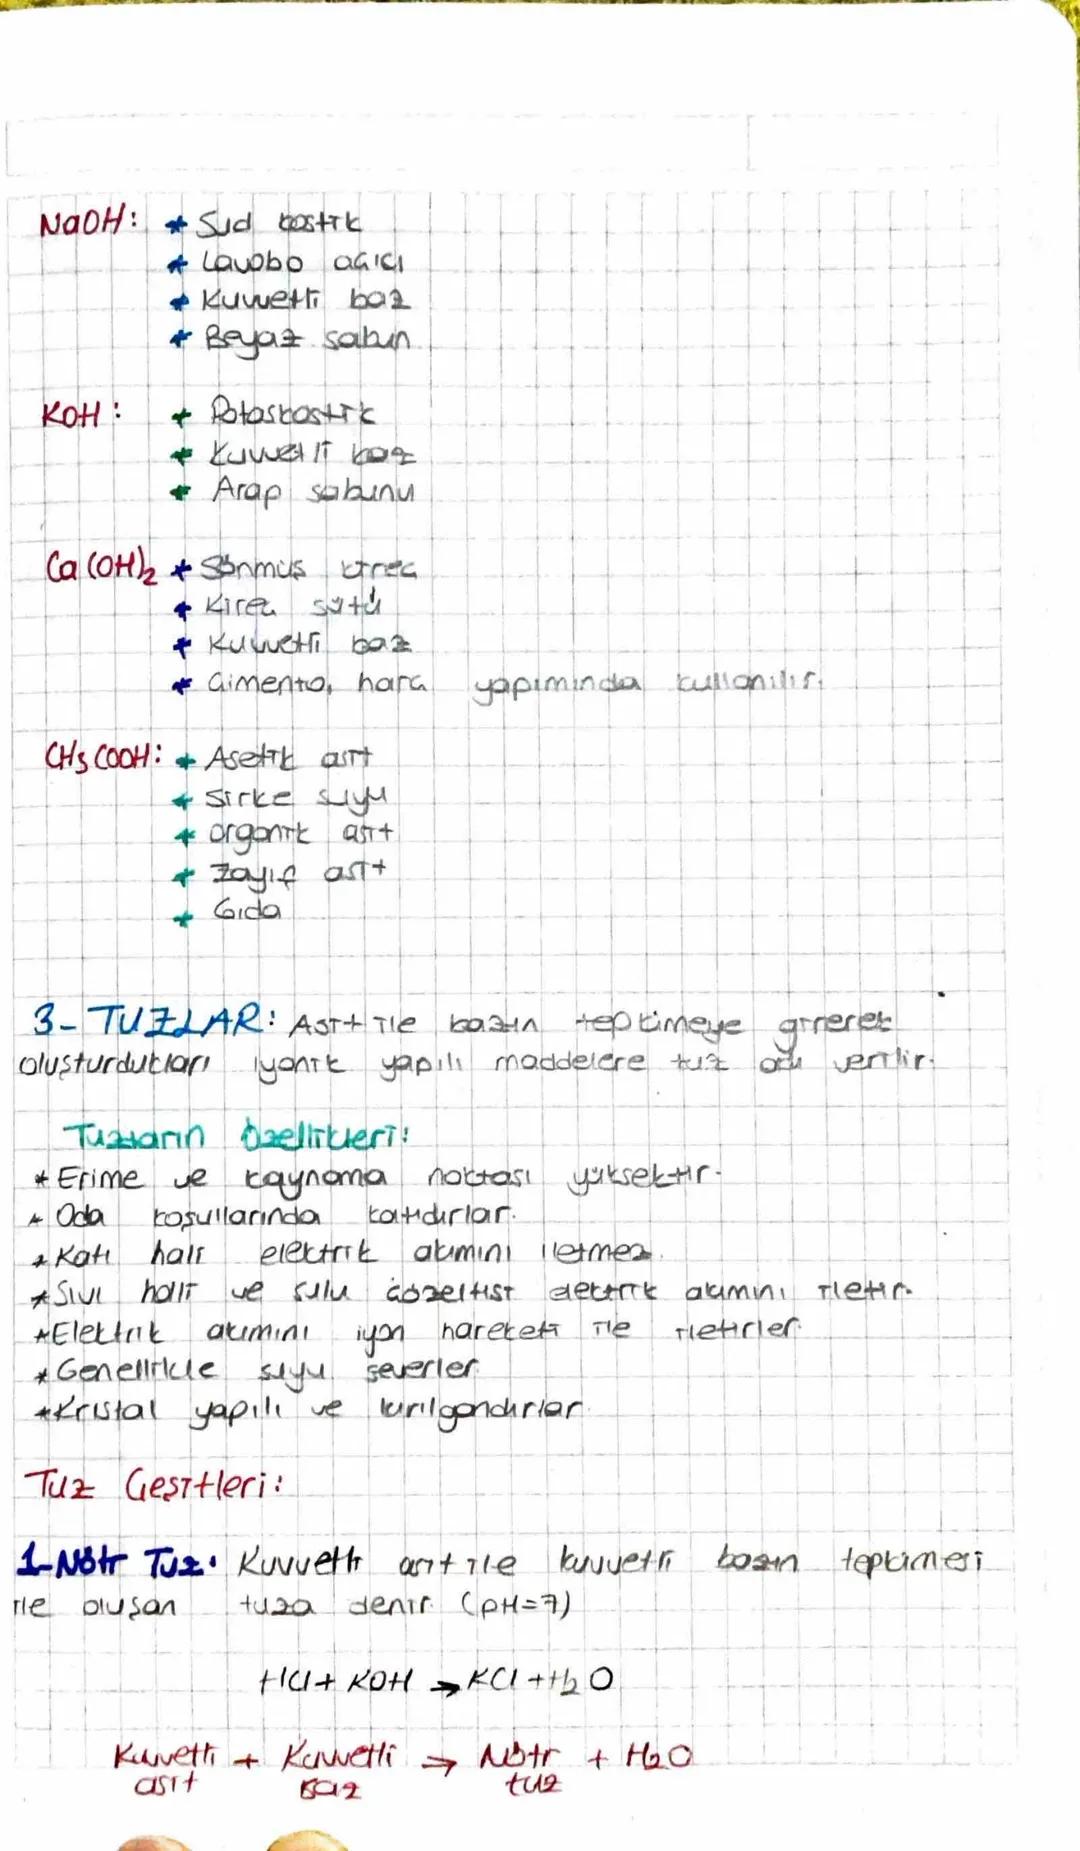 NaOH: * Sud kostik
* Lavobo açıcı
* Kuvvetli baz
* Beyaz sabun
KOH: * Potaskostik
* Kuvvetli baz
* Arap sabunu
Ca(OH)₂ * Sönmüş kireç
* Kireç sütü
* Kuvvetli baz
* Çimento, harç yapımında kullanılır.
CH₃COOH: * Asetik asit
* Sirke suyu
* organik asit
* Zayıf asit
* Gıda
3- TUZLAR: Asit ile bazın tepkimeye girerek
oluşturdukları iyonik yapılı maddelere tuz adı verilir.
Tuzların özellikleri:
* Erime ve kaynama noktası yüksektir.
* Oda koşullarında katıdırlar.
* Katı hali elektrik akımını iletmez.
* Sıvı hali ve sulu çözeltisi elektrik akımını iletir.
* Elektrik akımını iyon hareketi ile iletirler.
* Genellikle suyu severler.
* Kristal yapılı ve kırılgandırlar.
Tuz Çeşitleri:
1-Nötr Tuz: Kuvvetli asit ile kuvvetli bazın tepkimesi
ile oluşan tuza denir (pH=7)
HCl + KOH → KCl + H₂O
Kuvvetli + Kuvvetli → Nötr + H₂O
asit baz tuz